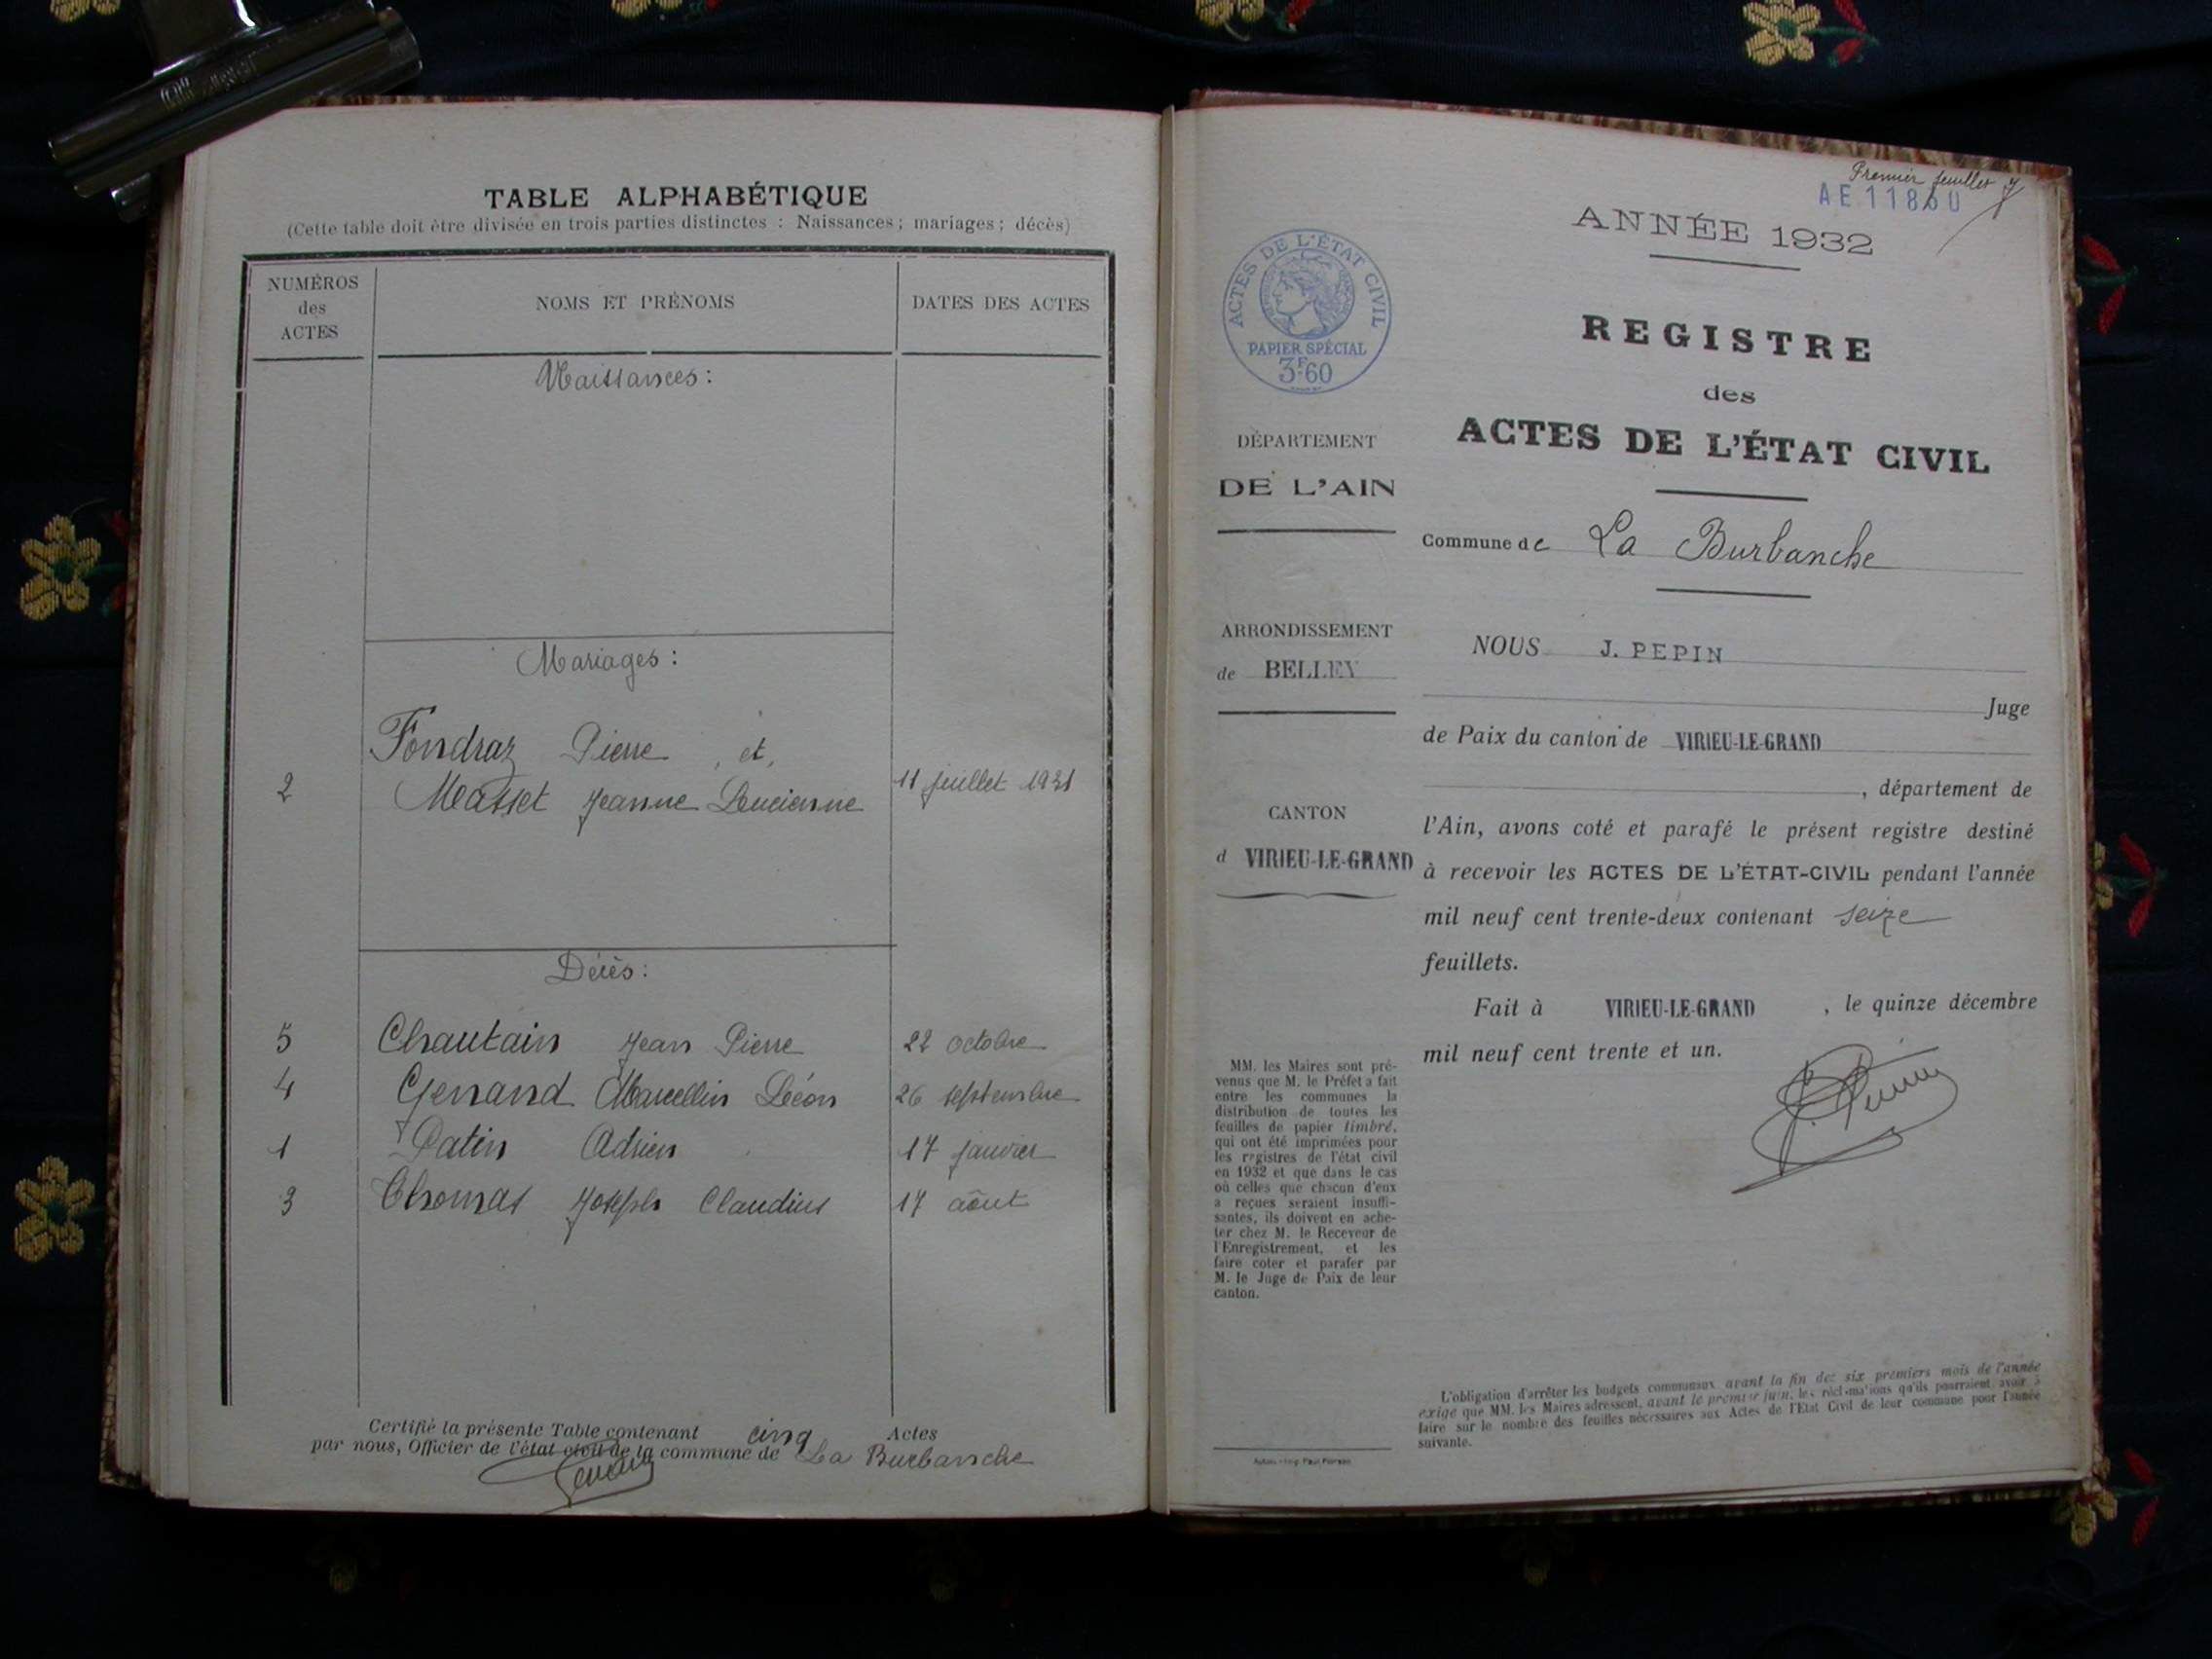 TABLE ALPHABÉTIQUE
(Cette table doit être divisée en trois parties distinctes : Naissances ; mariages ; décès)
NUMÉROS
des
ACTES
NOMS ET PRÉNOMS
DATES DES ACTES
Naissances :
Mariages :
Fondraz Pierre et
2 Masset Jeanne Lucienne 11 juillet 1931
Décès :
5 Chautain Jean Pierre 22 octobre
4 Genand Marcellin Léon 26 septembre
1 Patin Adrien 17 janvier
3 Thomas Joseph Claudius 17 août
Certifié la présente Table contenant cinq Actes
par nous, Officier de l'état civil de la commune de La Burbanche
Premier feuillet
AE 11860
ANNÉE 1932
ACTES DE L'ÉTAT CIVIL
PAPIER SPÉCIAL
3F.60
REGISTRE
des
ACTES DE L'ÉTAT CIVIL
DÉPARTEMENT
DE L'AIN
Commune de La Burbanche
ARRONDISSEMENT
de BELLEY
NOUS J. PEPIN
Juge
de Paix du canton de VIRIEU-LE-GRAND
, département de
CANTON
d VIRIEU-LE-GRAND
l'Ain, avons coté et parafé le présent registre destiné
à recevoir les ACTES DE L'ÉTAT-CIVIL pendant l'année
mil neuf cent trente-deux contenant seize
feuillets.
Fait à VIRIEU-LE-GRAND , le quinze décembre
mil neuf cent trente et un.
MM. les Maires sont pré-
venus que M. le Préfet a fait
entre les communes la
distribution de toutes les
feuilles de papier timbré,
qui ont été imprimées pour
les registres de l'état civil
en 1932 et que dans le cas
où celles que chacun d'eux
a reçues seraient insuffi-
santes, ils doivent en ache-
ter chez M. le Receveur de
l'Enregistrement, et les
faire coter et parafer par
M. le Juge de Paix de leur
canton.
L'obligation d'arrêter les budgets communaux avant la fin des six premiers mois de l'année
exige que MM. les Maires adressent, avant le premier juin, les réclamations qu'ils pourraient avoir à
faire sur le nombre des feuilles nécessaires aux Actes de l'Etat Civil de leur commune pour l'année
suivante.